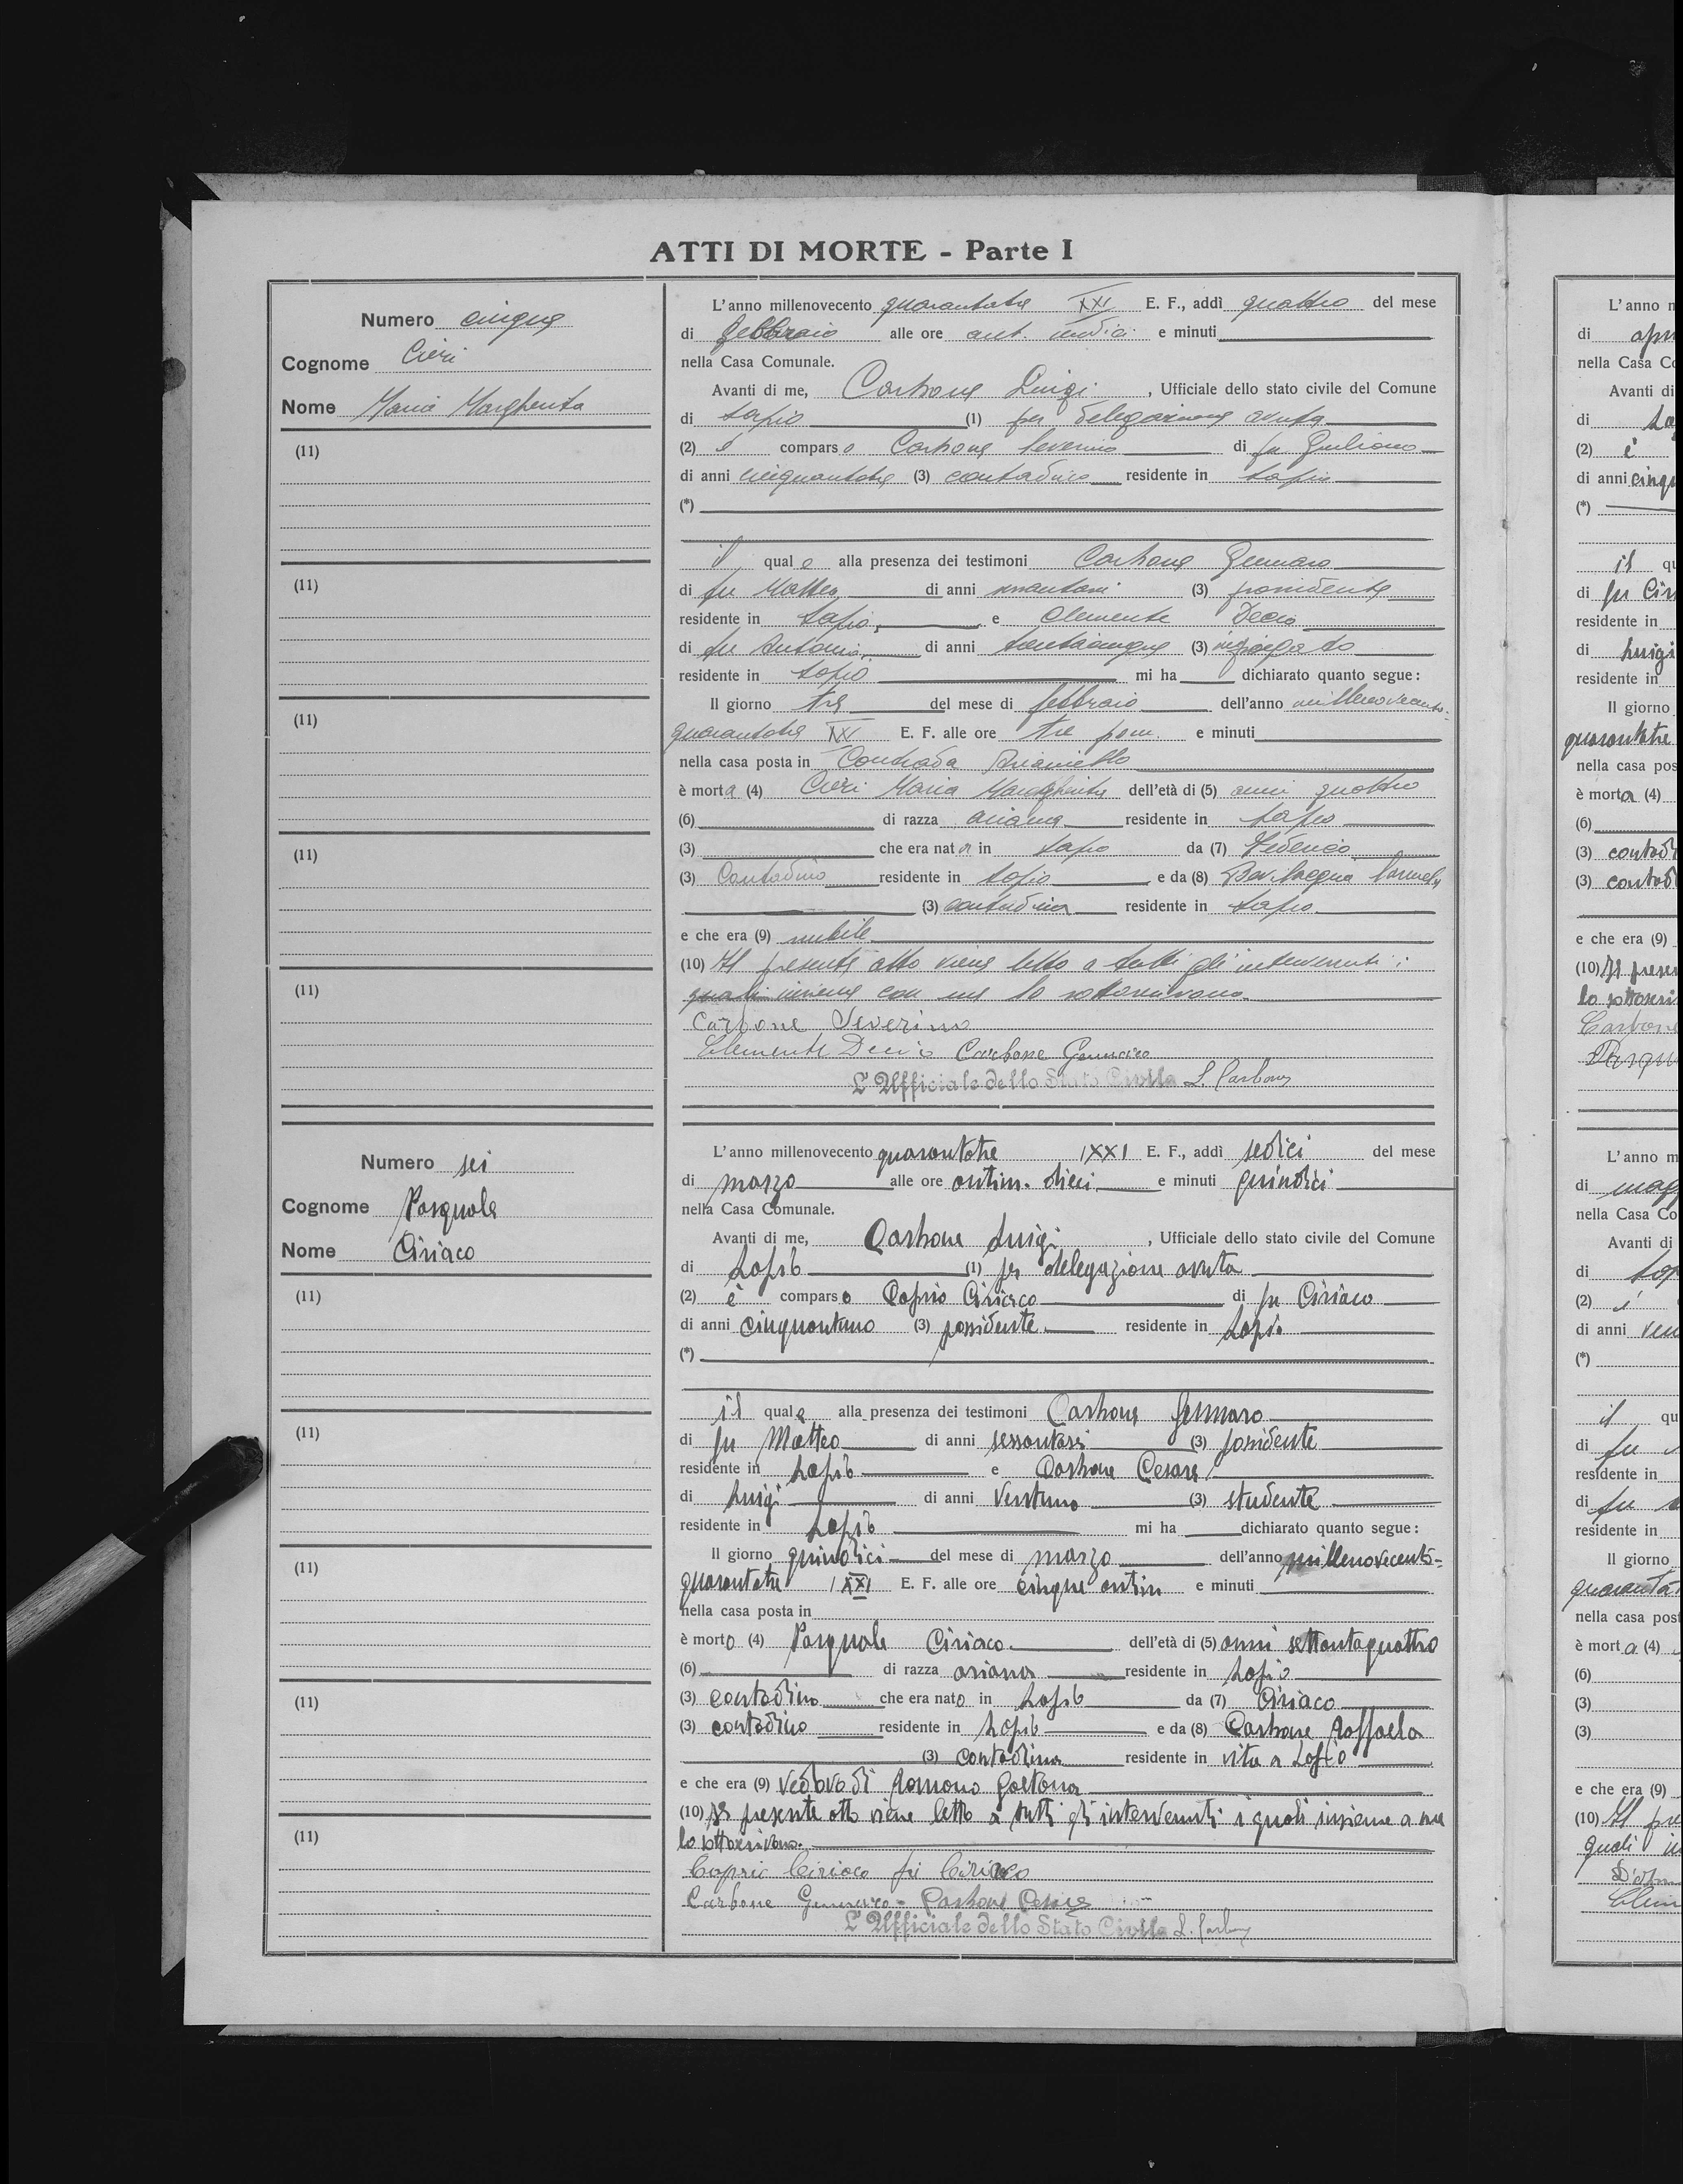 ATTI DI MORTE - Parte I
Numero cinque
Cognome Cieri
Nome Maria Margherita
(11)
(11)
(11)
(11)
(11)
L'anno millenovecento quarantatre XXI E. F., addì quattro del mese
di febbraio alle ore ant. undici e minuti
nella Casa Comunale.
Avanti di me, Carbone Luigi, Ufficiale dello stato civile del Comune
di Lapio (1) per delegazione avuta
(2) è comparso Carbone Severino di fu Giuliano
di anni cinquantatre (3) contadino residente in Lapio
(*)
il quale alla presenza dei testimoni Carbone Gennaro
di fu Matteo di anni (3) possidente
residente in Lapio, e Clemente Decio
di fu Antonio di anni trentacinque (3) impiegato
residente in Lapio mi ha dichiarato quanto segue:
Il giorno tre del mese di febbraio dell'anno millenovecento-
quarantatre E. F. alle ore tre pom. e minuti
nella casa posta in Contrada Arianiello
è morta (4) Cieri Maria Margherita dell'età di (5) anni quattro
(6) di razza ariana residente in Lapio
(3) che era nata in Lapio da (7) Federico
(3) Contadino residente in Lapio e da (8) Bevilacqua Carmela
(3) contadina residente in Lapio
e che era (9) nubile
(10) Il presente atto viene letto a tutti gli intervenuti i
quali insieme con me lo sottoscrivono.
Carbone Severino
Clemente Decio Carbone Gennaro
L'Ufficiale dello Stato Civile L. Carbone
Numero sei
Cognome Pasquale
Nome Ciriaco
(11)
(11)
(11)
(11)
(11)
L'anno millenovecento quarantatre XXI E. F., addì sedici del mese
di marzo alle ore antim. dieci e minuti quindici
nella Casa Comunale.
Avanti di me, Carbone Luigi, Ufficiale dello stato civile del Comune
di Lapio (1) per delegazione avuta
(2) è comparso Caprio Ciriaco di fu Ciriaco
di anni cinquantuno (3) possidente residente in Lapio
(*)
il quale alla presenza dei testimoni Carbone Gennaro
di fu Matteo di anni sessantasei (3) possidente
residente in Lapio e Carbone Cesare
di Luigi di anni ventuno (3) studente
residente in Lapio mi ha dichiarato quanto segue:
Il giorno quindici del mese di marzo dell'anno millenovecento-
quarantatre XXI E. F. alle ore cinque antim e minuti
nella casa posta in
è morto (4) Pasquale Ciriaco dell'età di (5) anni settantaquattro
(6) di razza ariana residente in Lapio
(3) contadino che era nato in Lapio da (7) Ciriaco
(3) contadino residente in Lapio e da (8) Carbone Raffaela
(3) contadina residente in vita a Lapio
e che era (9) vedovo di Romano Gaetana
(10) Il presente atto viene letto a tutti gli intervenuti i quali insieme a me
lo sottoscrivono.
Caprio Ciriaco fu Ciriaco
Carbone Gennaro - Carbone Cesare
L'Ufficiale dello Stato Civile L. Carbone
L'anno
di
nella Casa
Avanti di
di
(2) è
di anni
(*)
il
di fu
residente in
di Luigi
residente in
Il giorno
quarantatre
nella casa
è morta (4)
(6)
(3)
(3)
e che era (9)
(10) Il
L'anno
di
nella Casa
Avanti di
di
(2) è
di anni
(*)
il
di fu
residente in
di fu
residente in
Il giorno
nella casa
è morta (4)
(6)
(3)
(3)
e che era (9)
(10) Il
quali